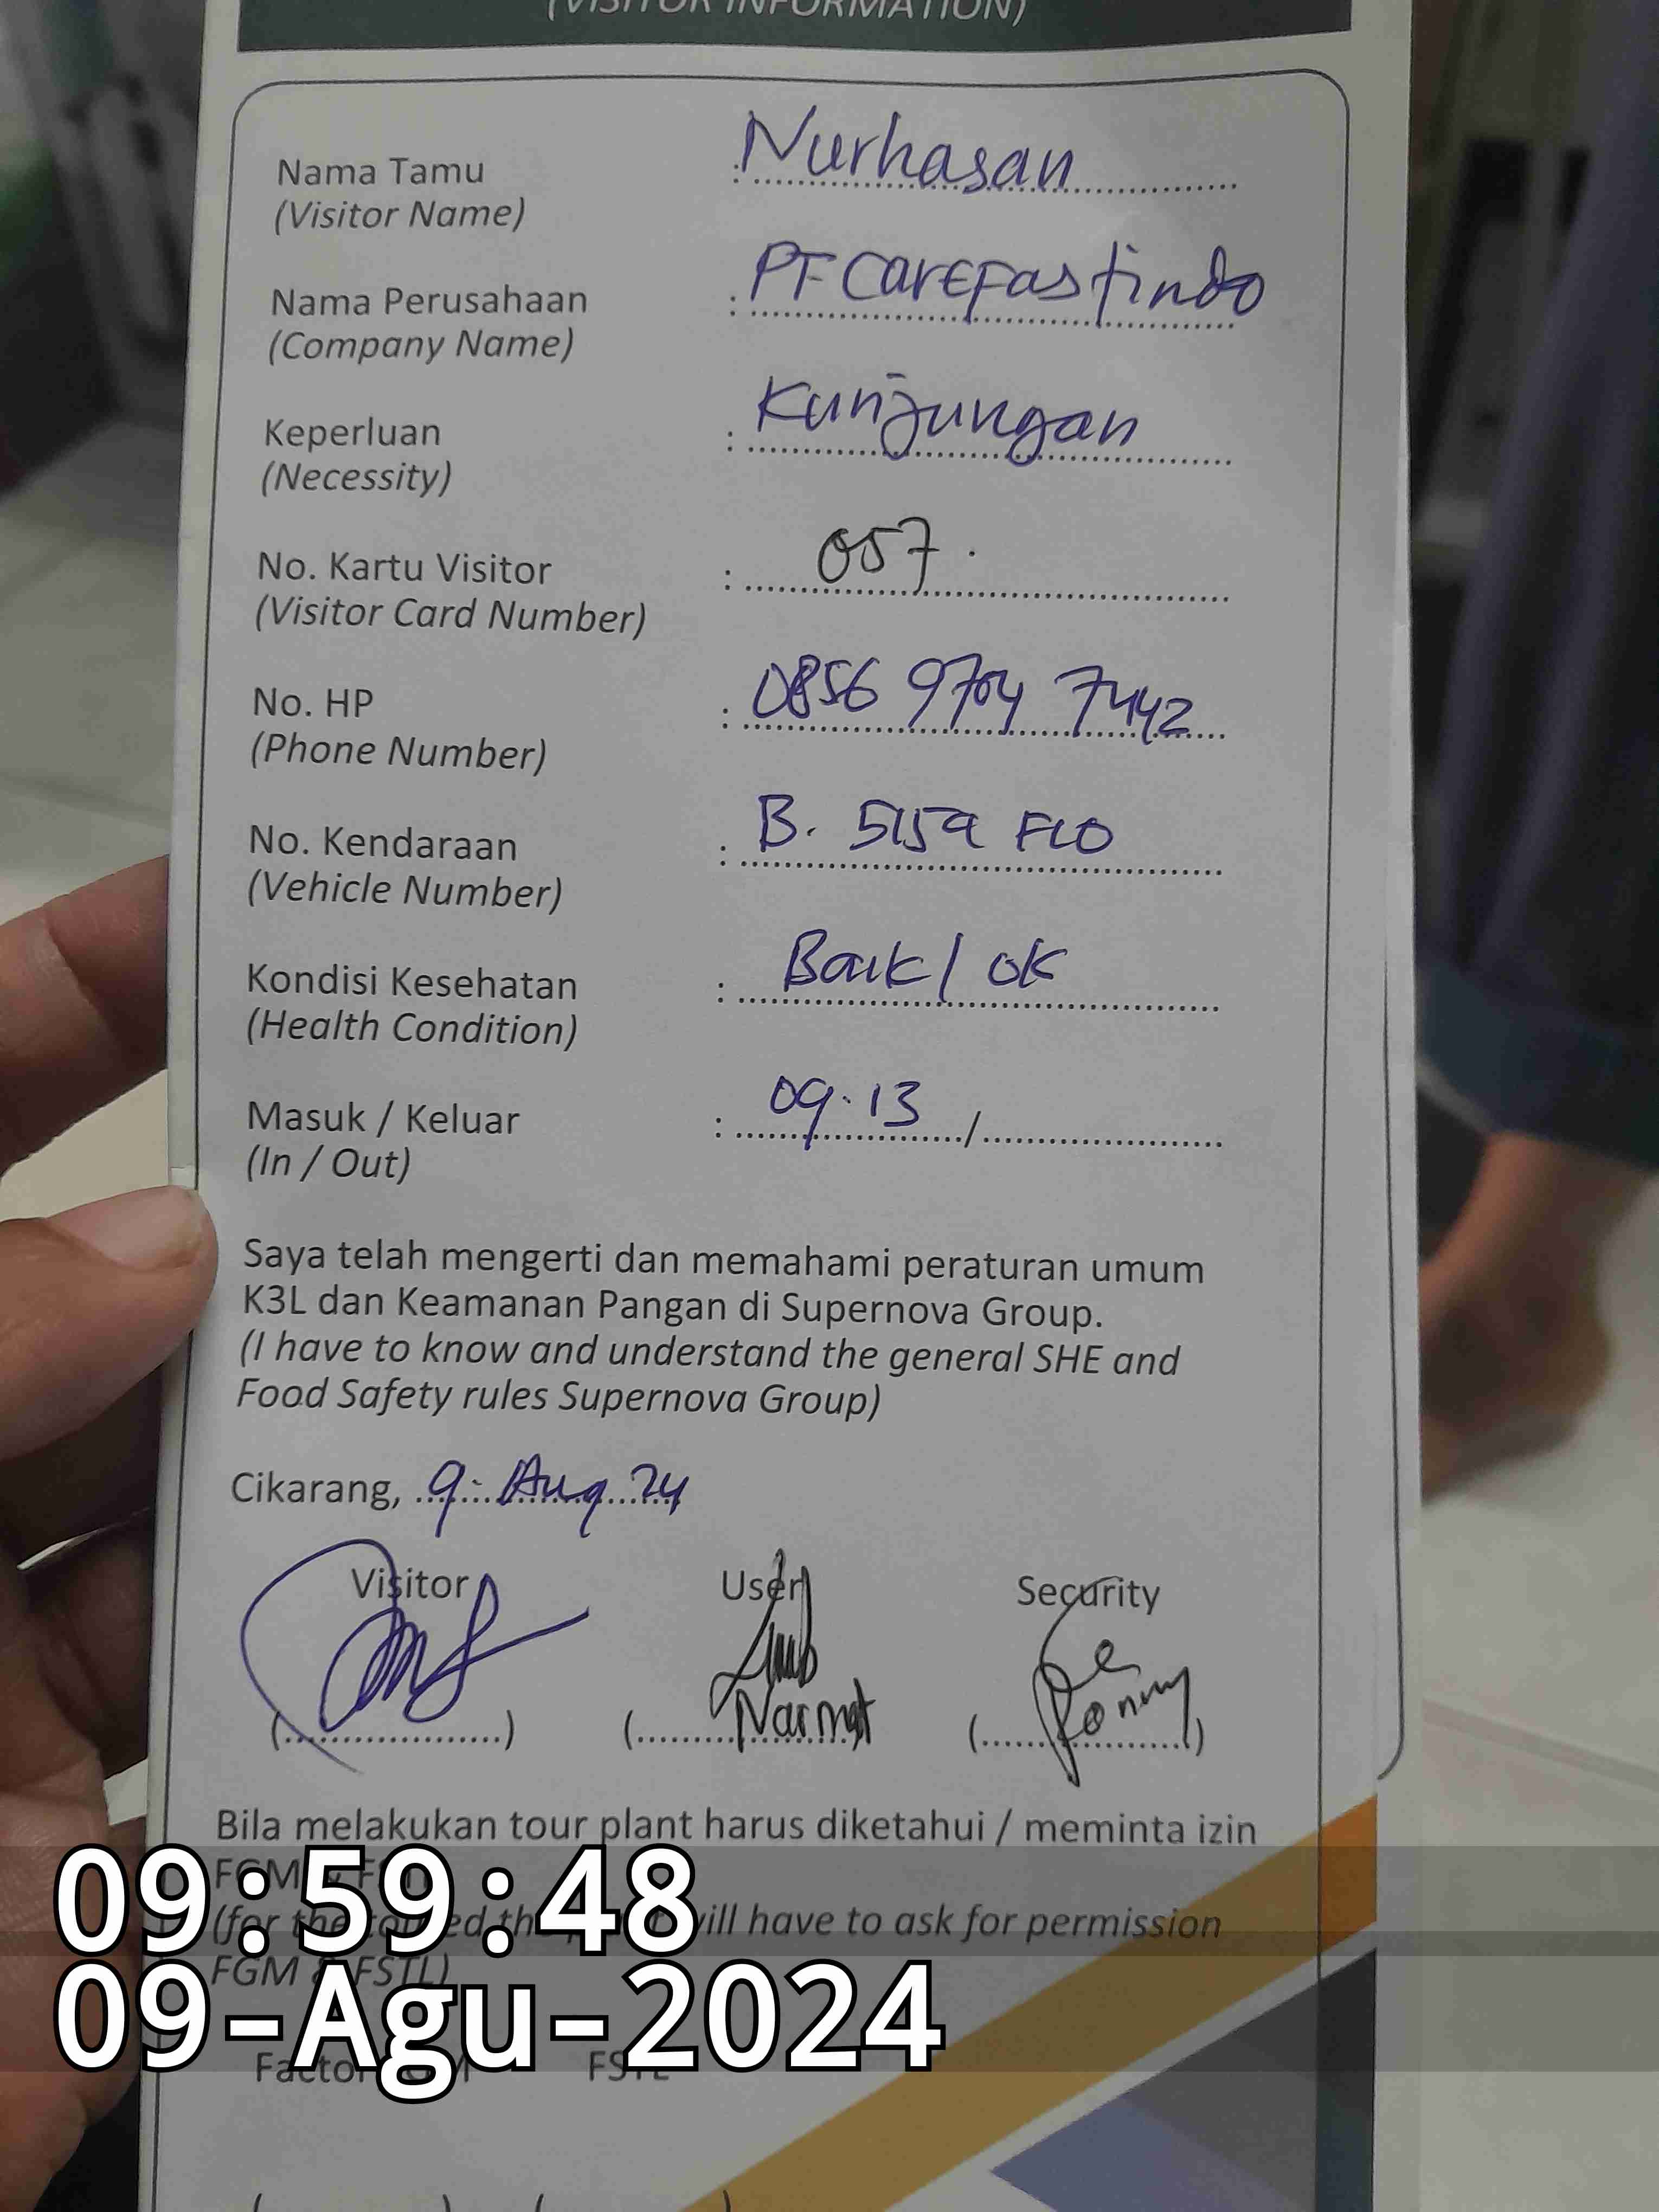 (VISITOR INFORMATION)
Nama Tamu : Nurhasan
(Visitor Name)
Nama Perusahaan : PT Carefastindo
(Company Name)
Keperluan : Kunjungan
(Necessity)
No. Kartu Visitor : 057.
(Visitor Card Number)
No. HP : 0856 9704 7442
(Phone Number)
No. Kendaraan : B. 5159 FLO
(Vehicle Number)
Kondisi Kesehatan : Baik / OK
(Health Condition)
Masuk / Keluar : 09.13 /
(In / Out)
Saya telah mengerti dan memahami peraturan umum
K3L dan Keamanan Pangan di Supernova Group.
(I have to know and understand the general SHE and
Food Safety rules Supernova Group)
Cikarang, 9. Aug 24
Visitor User Security
Narmat
Bila melakukan tour plant harus diketahui / meminta izin
FGM & FSTL
(for the will have to ask for permission
FGM & FSTL)
09:59:48
09-Agu-2024
FSTL